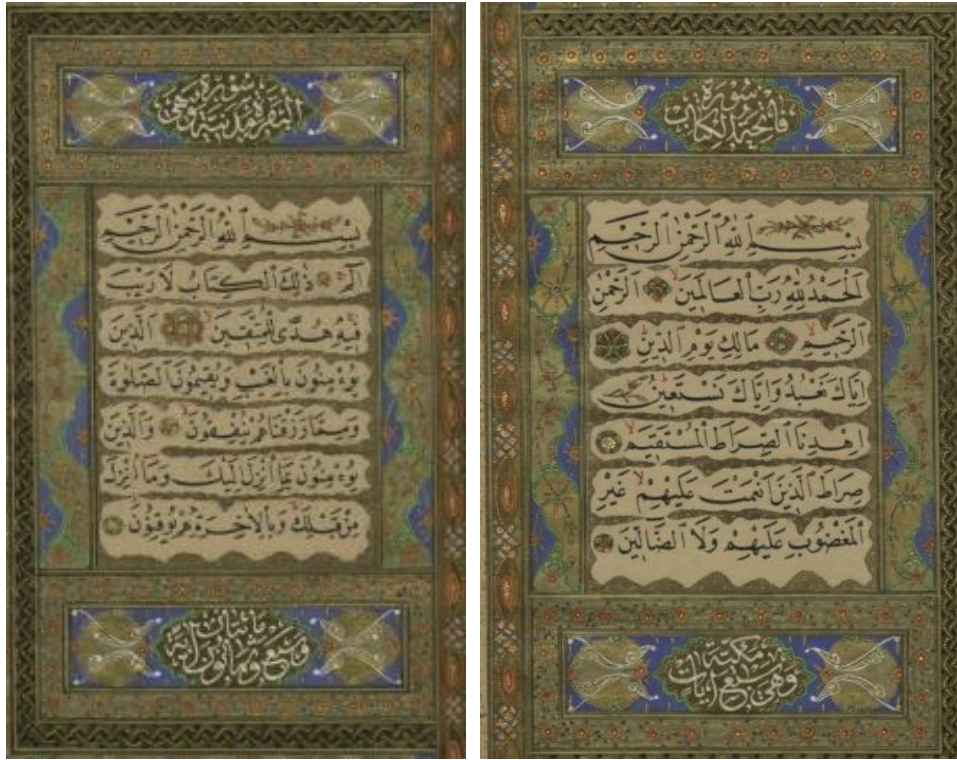 سُورَةُ
فَاتِحَةِ الْكِتَابِ
بِسْمِ اللهِ الرَّحْمٰنِ الرَّحِيمِ
اَلْحَمْدُ لِلّٰهِ رَبِّ الْعَالَمِينَ ۙ اَلرَّحْمٰنِ
الرَّحِيمِ ۙ مَالِكِ يَوْمِ الدِّينِ
اِيَّاكَ نَعْبُدُ وَاِيَّاكَ نَسْتَعِينُ
اِهْدِنَا الصِّرَاطَ الْمُسْتَقِيمَ ۙ
صِرَاطَ الَّذِينَ اَنْعَمْتَ عَلَيْهِمْ ۙ غَيْرِ
الْمَغْضُوبِ عَلَيْهِمْ وَلَا الضَّالِّينَ
مَكِّيَّة
وَهِيَ سَبْعُ اٰيَاتٍ
سُورَةُ
الْبَقَرَةِ مَدَنِيَّةٌ وَهِيَ
بِسْمِ اللهِ الرَّحْمٰنِ الرَّحِيمِ
الٓمٓ ذٰلِكَ الْكِتَابُ لَا رَيْبَ
فِيهِ هُدًى لِلْمُتَّقِينَ ۙ اَلَّذِينَ
يُؤْمِنُونَ بِالْغَيْبِ وَيُقِيمُونَ الصَّلٰوةَ
وَمِمَّا رَزَقْنَاهُمْ يُنْفِقُونَ ۙ وَالَّذِينَ
يُؤْمِنُونَ بِمَا اُنْزِلَ اِلَيْكَ وَمَا اُنْزِلَ
مِنْ قَبْلِكَ وَبِالْاٰخِرَةِ هُمْ يُوقِنُونَ
مِائَتَانِ
وَسَبْعٌ وَثَمَانُونَ اٰيَةً